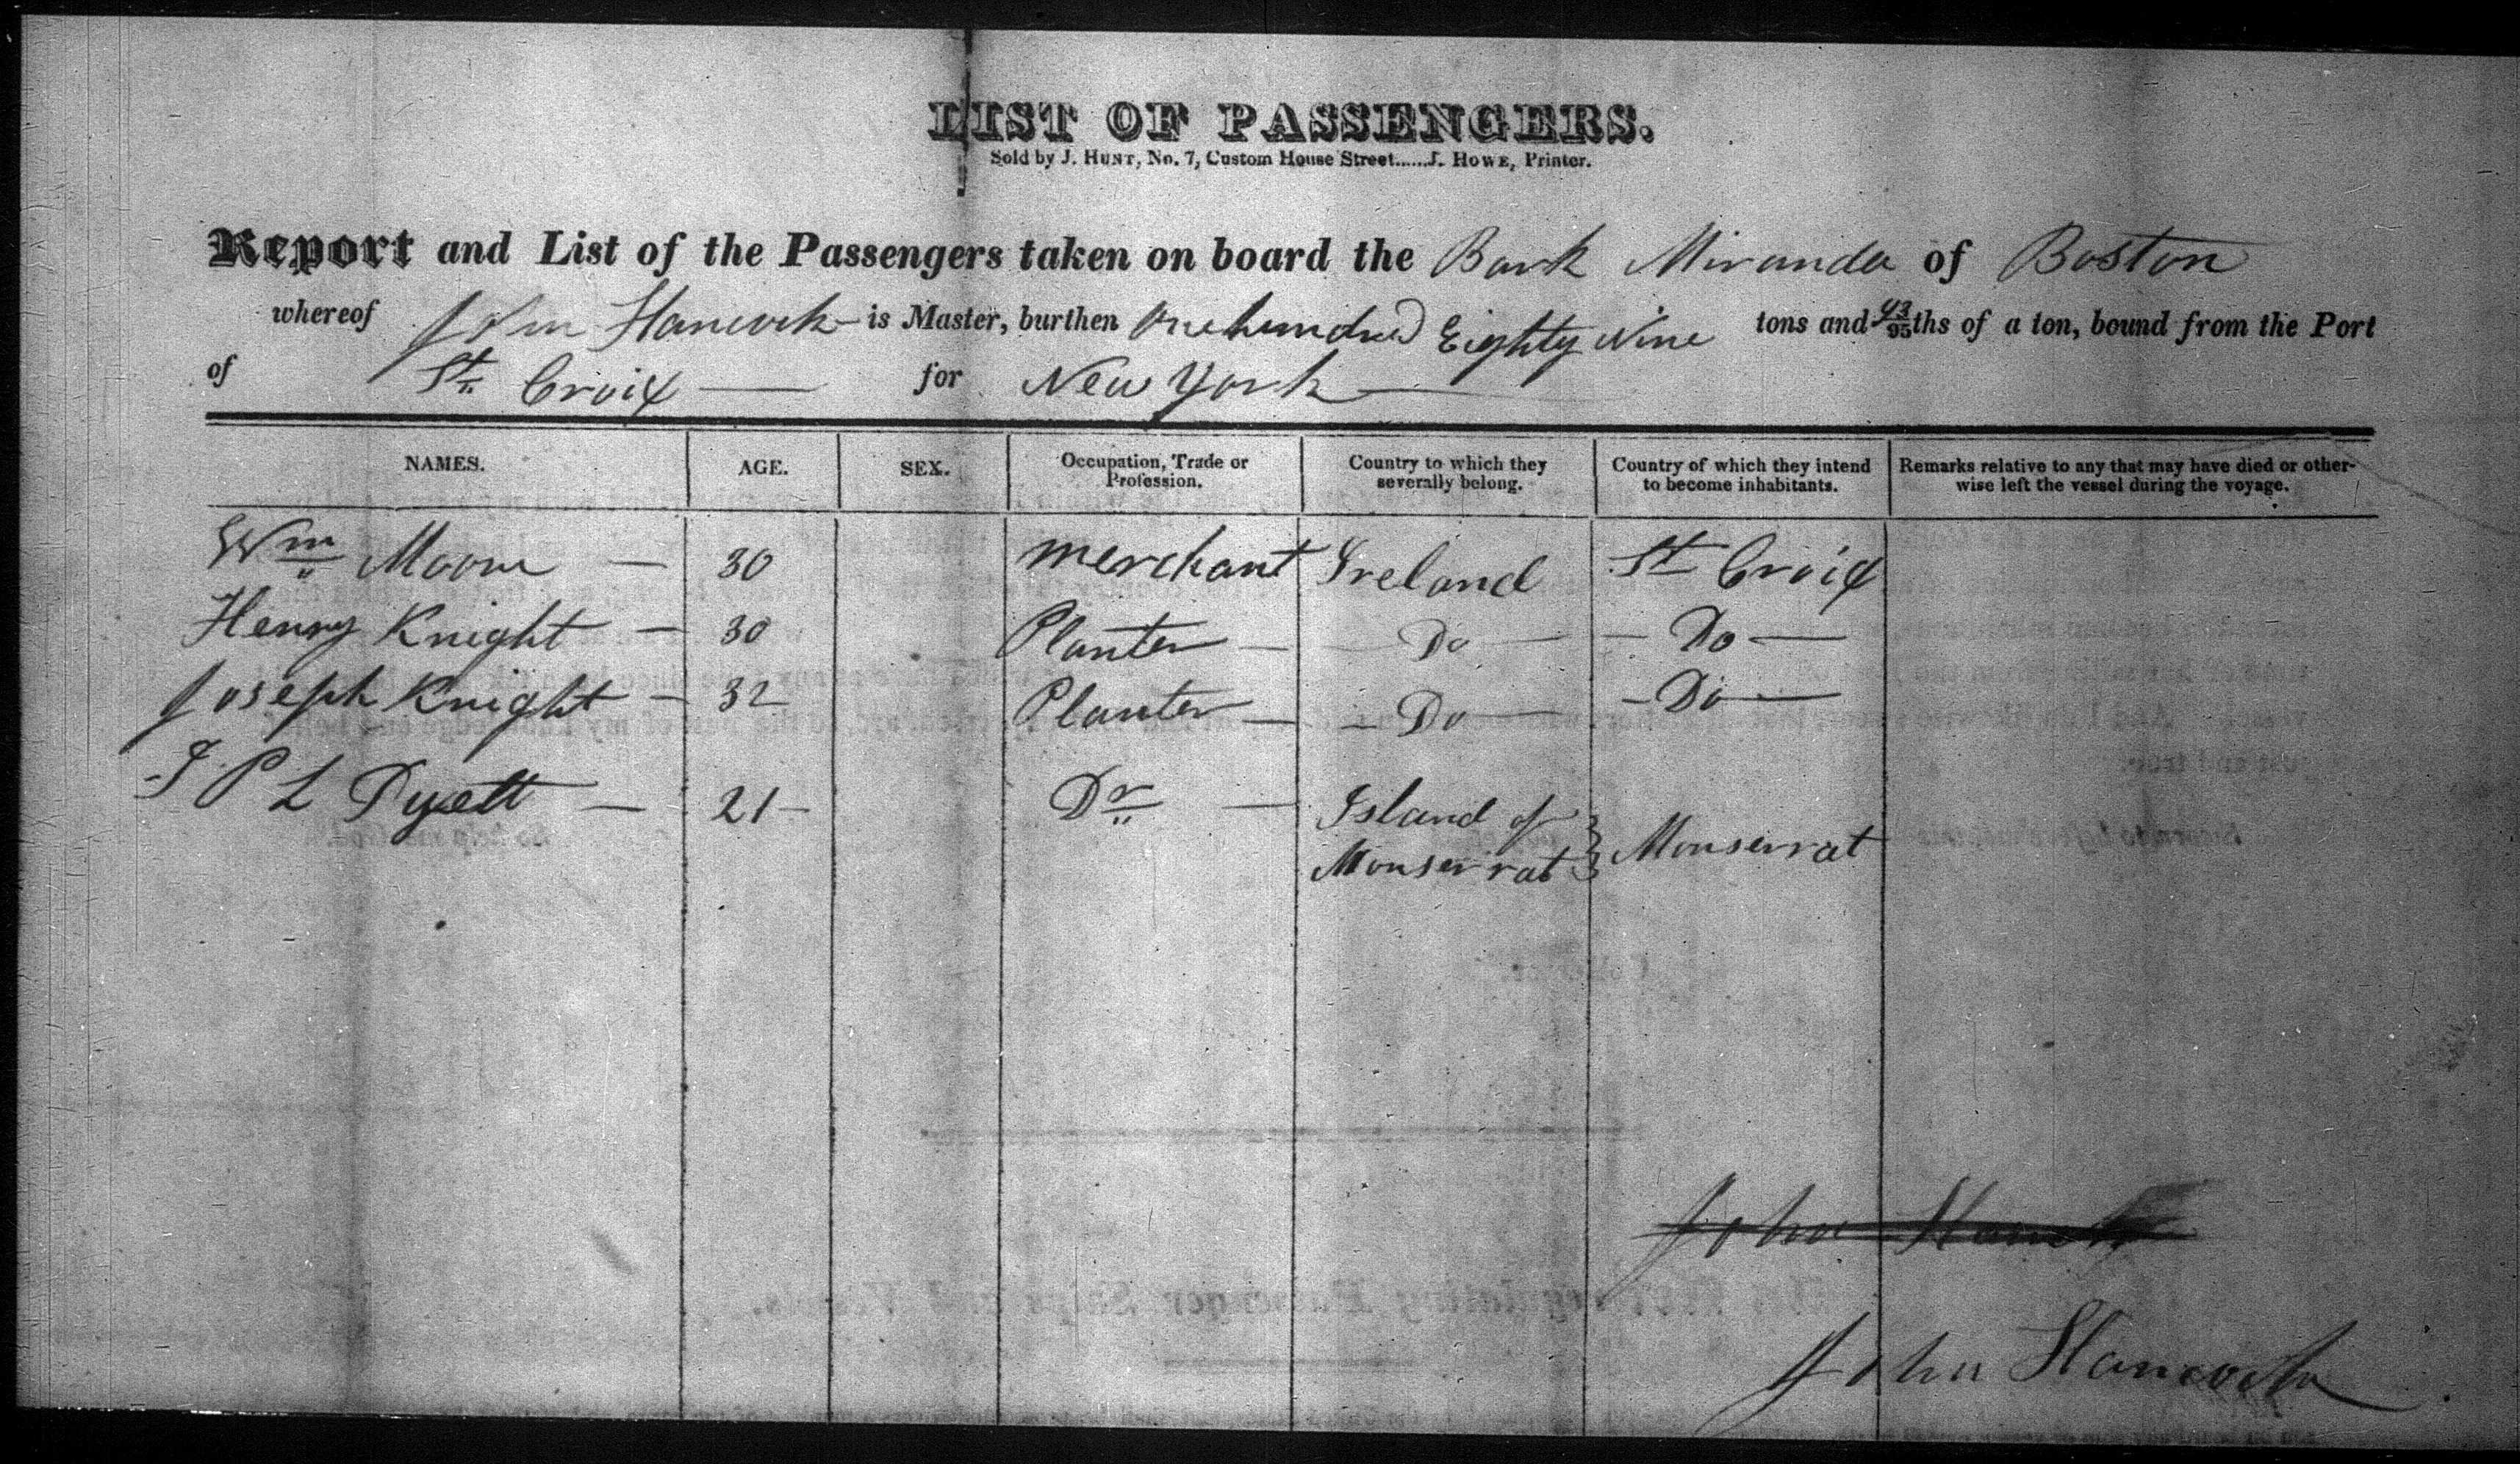 LIST OF PASSENGERS.
Sold by J. HUNT, No. 7, Custom House Street......J. HOWE, Printer.
Report and List of the Passengers taken on board the Bark Miranda of Boston
whereof John Hancock is Master, burthen One hundred Eighty Nine tons and 43/95ths of a ton, bound from the Port
of St. Croix for New York
NAMES. AGE. SEX. Occupation, Trade or Profession. Country to which they severally belong. Country of which they intend to become inhabitants. Remarks relative to any that may have died or otherwise left the vessel during the voyage.
Wm Moore — 30 merchant Ireland St Croix
Henry Knight — 30 Planter — Do — — Do —
Joseph Knight — 32 Planter — — Do — — Do —
J P L Dyett — 21 — Dr — Island of Monserrat } Monserrat
John Hanc
John Hancock